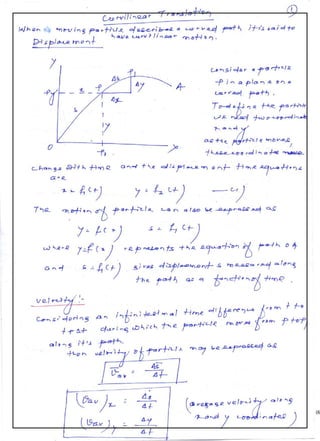 ①
Curvilinear Translation
When moving particle describes a curved path it is said to
have curvilinear motion.
Displacement
y
P1
Δs
A
Py
x
P
Δy
Δx
s
y
O
Px
x
Consider a particle
P in a plane on a
curved path.
To define the particle
we need two coordinates
x and y
as the particle moves,
these coordinates move
change with time and the displacement time equations
are
x = f1(t) y = f2(t) —(1)
The motion of particle can also be expressed as
y = f(x) s = f1(t)
where y = f(x) represents the equation of path OA
and s = f1(t) gives displacement s measured along
the path as a function of time.
Velocity:-
Considering an infinitesimal time difference from t to
t+Δt during which the particle moves from P to P1
along its path.
then velocity of particle may be expressed as
v̄av = Δs/Δt
(v̄av)x = Δx/Δt
(v̄av)y = Δy/Δt
(average velocity along
x and y coordinates)